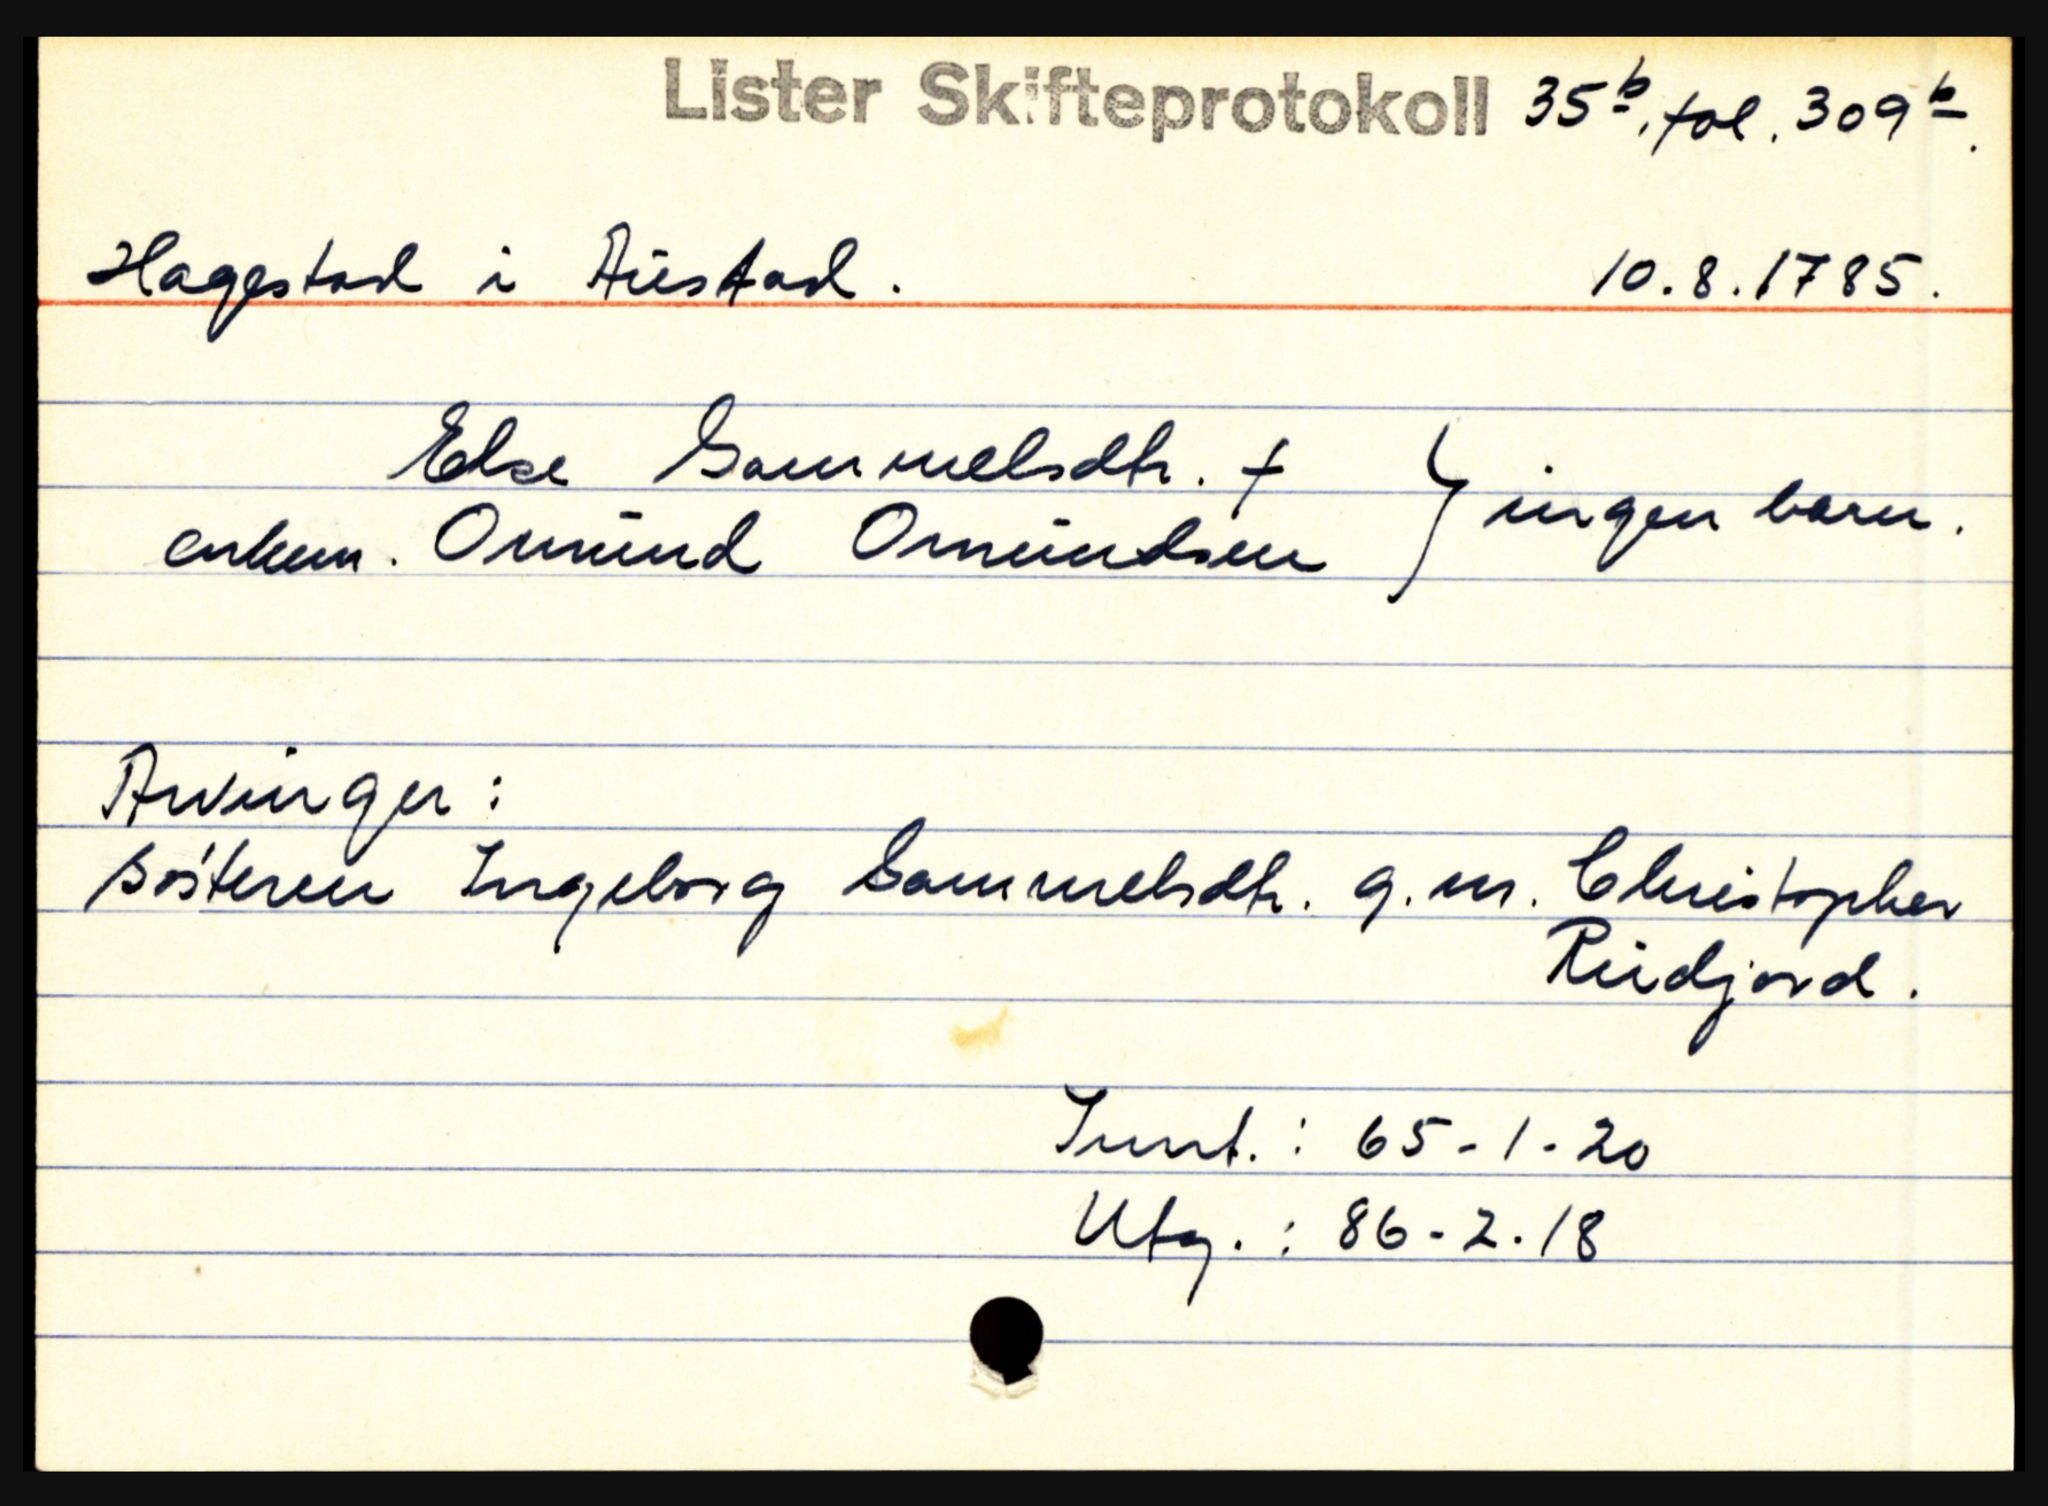 Lister Skifteprotokoll 35b, fol. 309b.
Hagestad i Austad. 10.8.1785.
Else Sammelsdtr. +
enkem. Omund Omundsen } ingen barn.
Arvinger:
søsteren Ingeborg Sammelsdtr. g.m. Christopher
Rudjord.
Innt.: 65-1-20
Utg.: 86-2-18